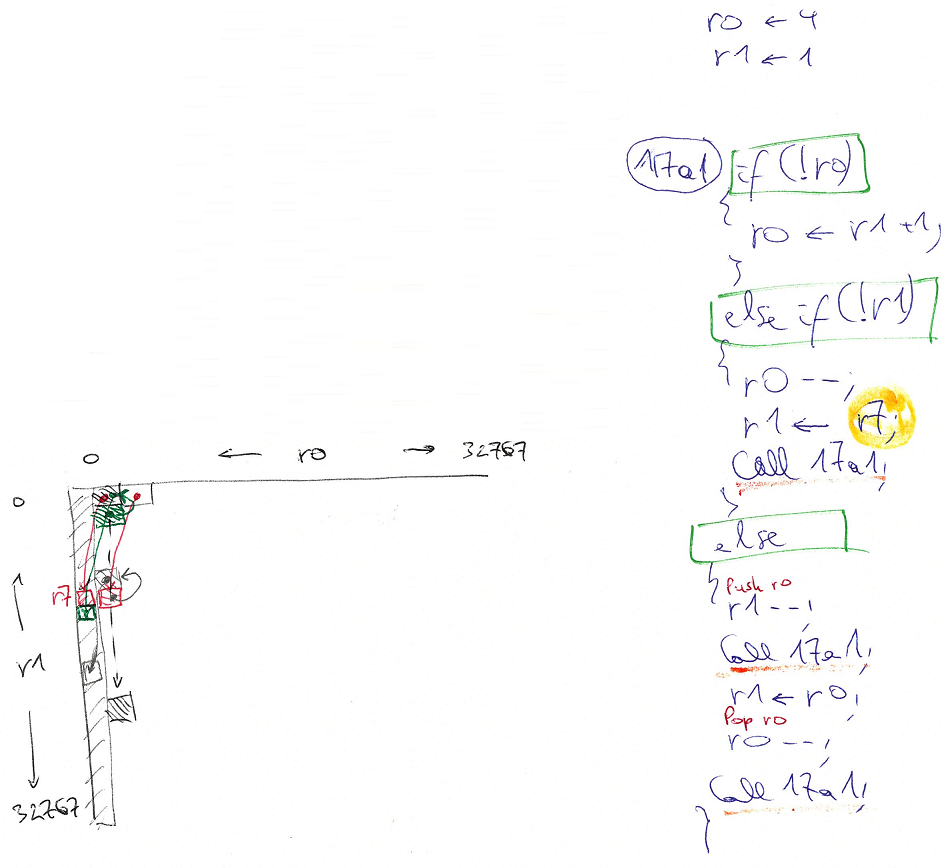 r0 ← 4
r1 ← 1
17a1 if (!r0)
{
r0 ← r1 +1;
}
else if (!r1)
{
r0 --;
r1 ← r7;
Call 17a1;
}
else
{
Push r0
r1 --;
Call 17a1;
r1 ← r0;
Pop r0
r0 --;
Call 17a1;
}
0 ← r0 → 32767
0
r7
r1
32767